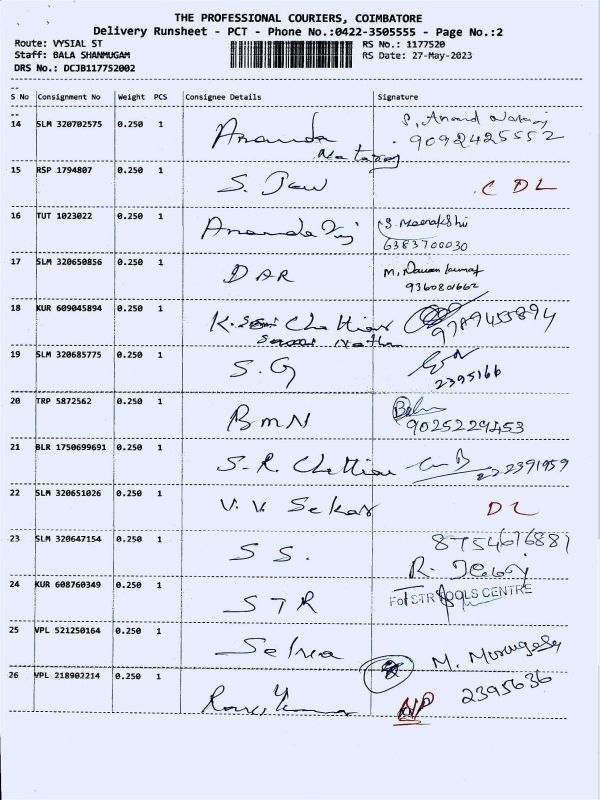 THE PROFESSIONAL COURIERS, COIMBATORE
Delivery Runsheet - PCT - Phone No.:0422-3505555 - Page No.:2
Route: VYSIAL ST RS No.: 1177520
Staff: BALA SHANMUGAM RS Date: 27-May-2023
DRS No.: DCJB117752002
S No Consignment No Weight PCS Consignee Details Signature
14 SLM 320702575 0.250 1 Ananda Nataraj S. Anand
9092425552
15 RSP 1794807 0.250 1 S. CDL
16 TUT 1023022 0.250 1 S. Meenakshi
6383700030
17 SLM 320650856 0.250 1 DAR M.
9360801662
18 KUR 609045894 0.250 1 K. Chettiar 9789455894
19 SLM 320685775 0.250 1 S.G
2395166
20 TRP 5872562 0.250 1 BMN Bala
9025229453
21 BLR 1750699691 0.250 1 S.R. Chettiar 2391959
22 SLM 320651026 0.250 1 V.V. Sekar DL
23 SLM 320647154 0.250 1 S S. 8754616881
R.
24 KUR 608760349 0.250 1 STR For STR TOOLS CENTRE
25 VPL 521250164 0.250 1 Selva M. Murugesa
2395636
26 VPL 218902214 0.250 1 NP